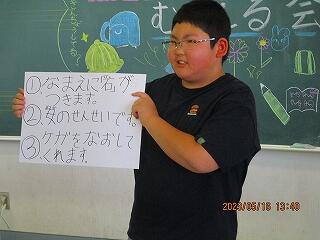 むかえる会
①なまえに"石"が
つきます。
②女のせんせいです。
③ケガをなおして
くれます。
2023/05/16 13:49